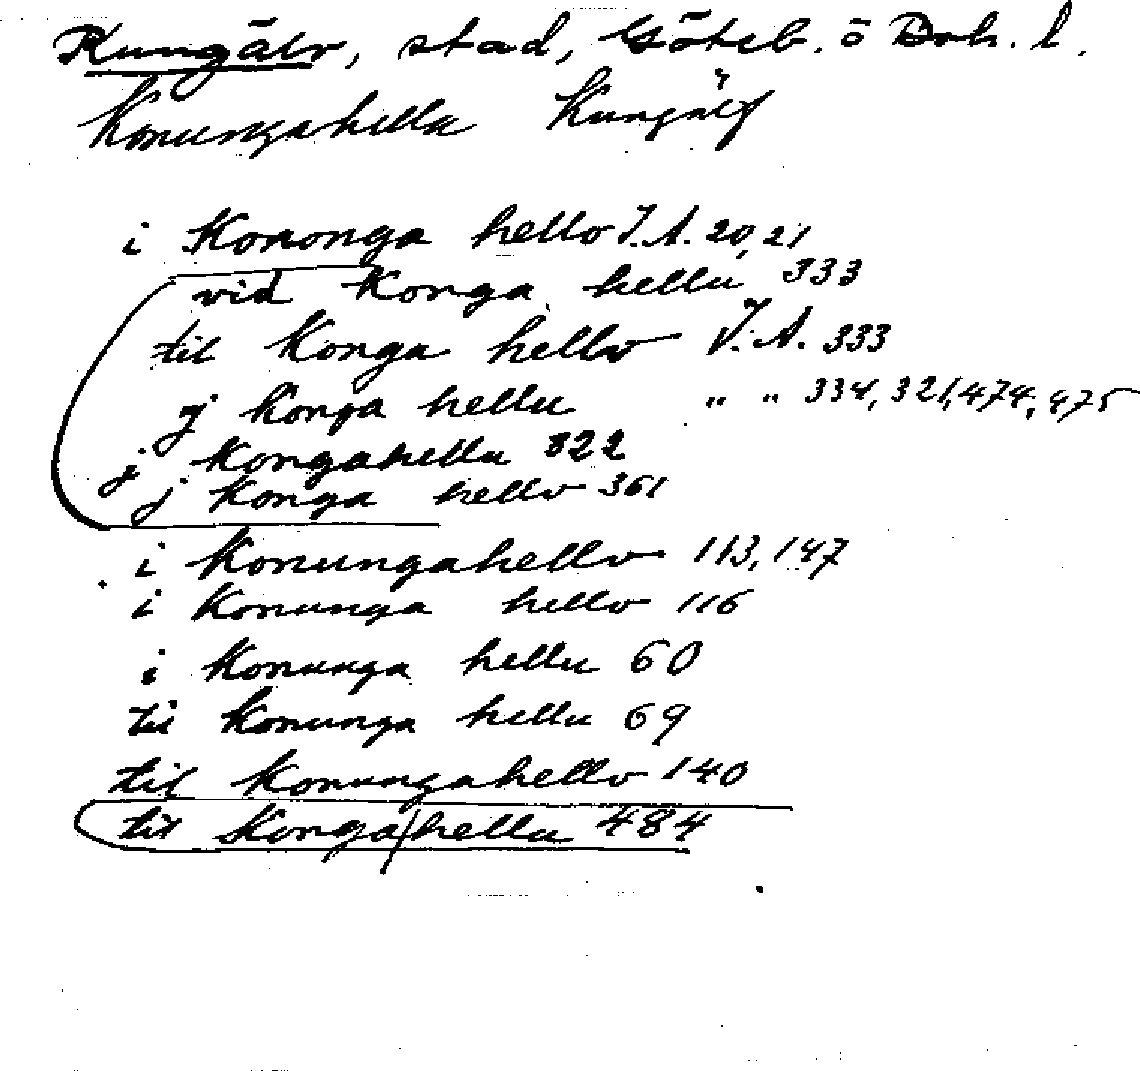 Kungälv, stad, Göteb. o Boh. l.
Konungahella Kungälf
i Kononga hello I.A. 20, 21
vid Konga hellu 333
til Konga hello I.A. 333
j Konga hellu „ „ 334, 321, 474, 475
j Kongahellu 322
j Konga hello 361
i Konungahello 113, 147
i Konunga hello 116
i Konunga hellu 60
til Konunga hellu 69
til Konungahello 140
til Konga/hella 484